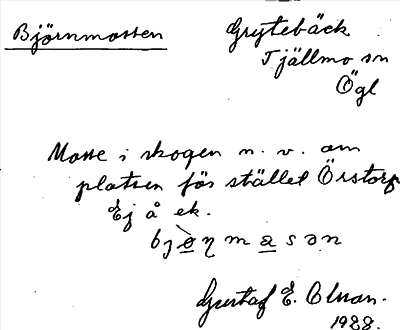 Björnmossen
Grytebäck
Tjällmo sn
Ögl
Mosse i skogen n. v. om
platsen för stället Örstorp
Ej å ek.
Gustaf E. Olson.
1928.